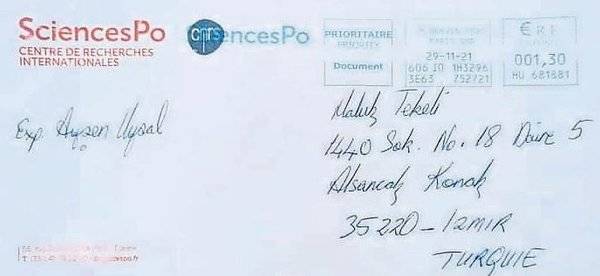 SciencesPo
CENTRE DE RECHERCHES
INTERNATIONALES
cnrs
SciencesPo
PRIORITAIRE
PRIORITY
Document
29-11-21
606 IO 1H3296
3E63 752721
€ R.F.
001,30
HU 681881
Exp. Ayşen Uysal
Haluk Tekeli
1440 Sok. No. 18 Daire 5
Alsancak Konak
35220-IZMIR
TURQUIE